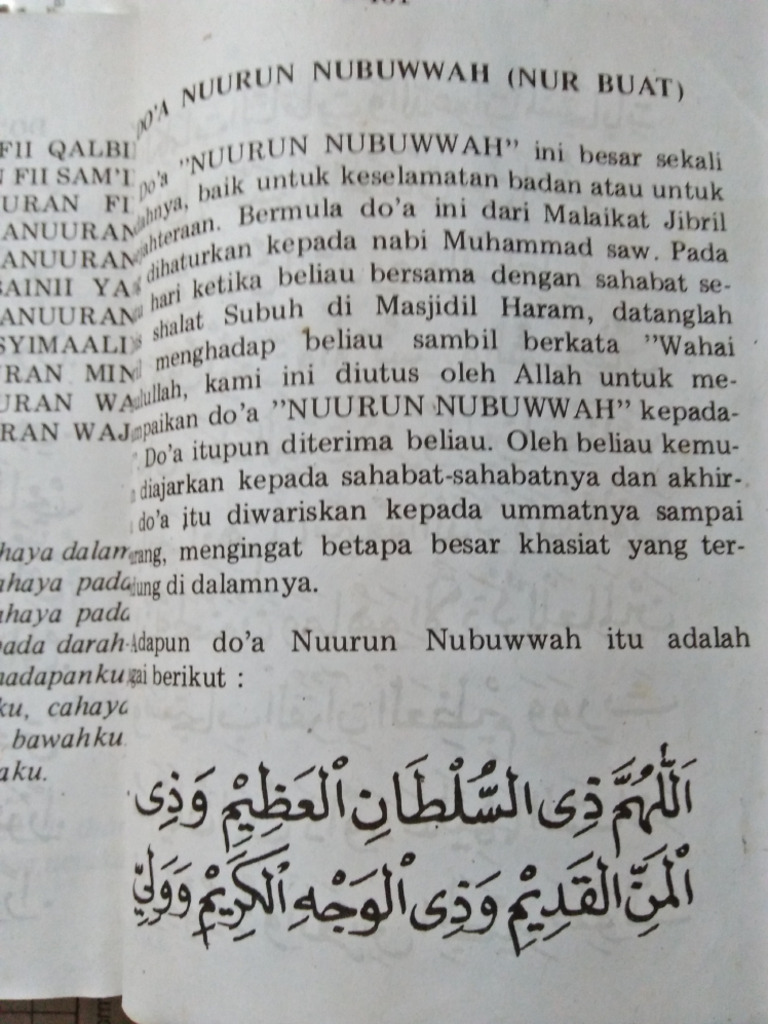 FII QALBI
FII SAM'I
URAN FI
ANUURAN
ANUURAN
AINII YA
ANUURAN
SYIMAALI
RAN MIN
URAN WA
RAN WAJ
haya dalam
ahaya pada
ahaya pada
pada darah-
hadapanku
ku, cahaya
bawahku
aku.
DO'A NUURUN NUBUWWAH (NUR BUAT)
Do'a "NUURUN NUBUWWAH" ini besar sekali
ahnya, baik untuk keselamatan badan atau untuk
ahteraan. Bermula do'a ini dari Malaikat Jibril
dihaturkan kepada nabi Muhammad saw. Pada
hari ketika beliau bersama dengan sahabat se-
shalat Subuh di Masjidil Haram, datanglah
menghadap beliau sambil berkata "Wahai
ullah, kami ini diutus oleh Allah untuk me-
paikan do'a "NUURUN NUBUWWAH" kepada-
Do'a itupun diterima beliau. Oleh beliau kemu-
diajarkan kepada sahabat-sahabatnya dan akhir-
do'a itu diwariskan kepada ummatnya sampai
rang, mengingat betapa besar khasiat yang ter-
ung di dalamnya.
Adapun do'a Nuurun Nubuwwah itu adalah
gai berikut :
اَللّٰهُمَّ ذِى السُّلْطَانِ الْعَظِيْمِ وَذِى
الْمَنِّ الْقَدِيْمِ وَذِى الْوَجْهِ الْكَرِيْمِ وَوَلِيِّ